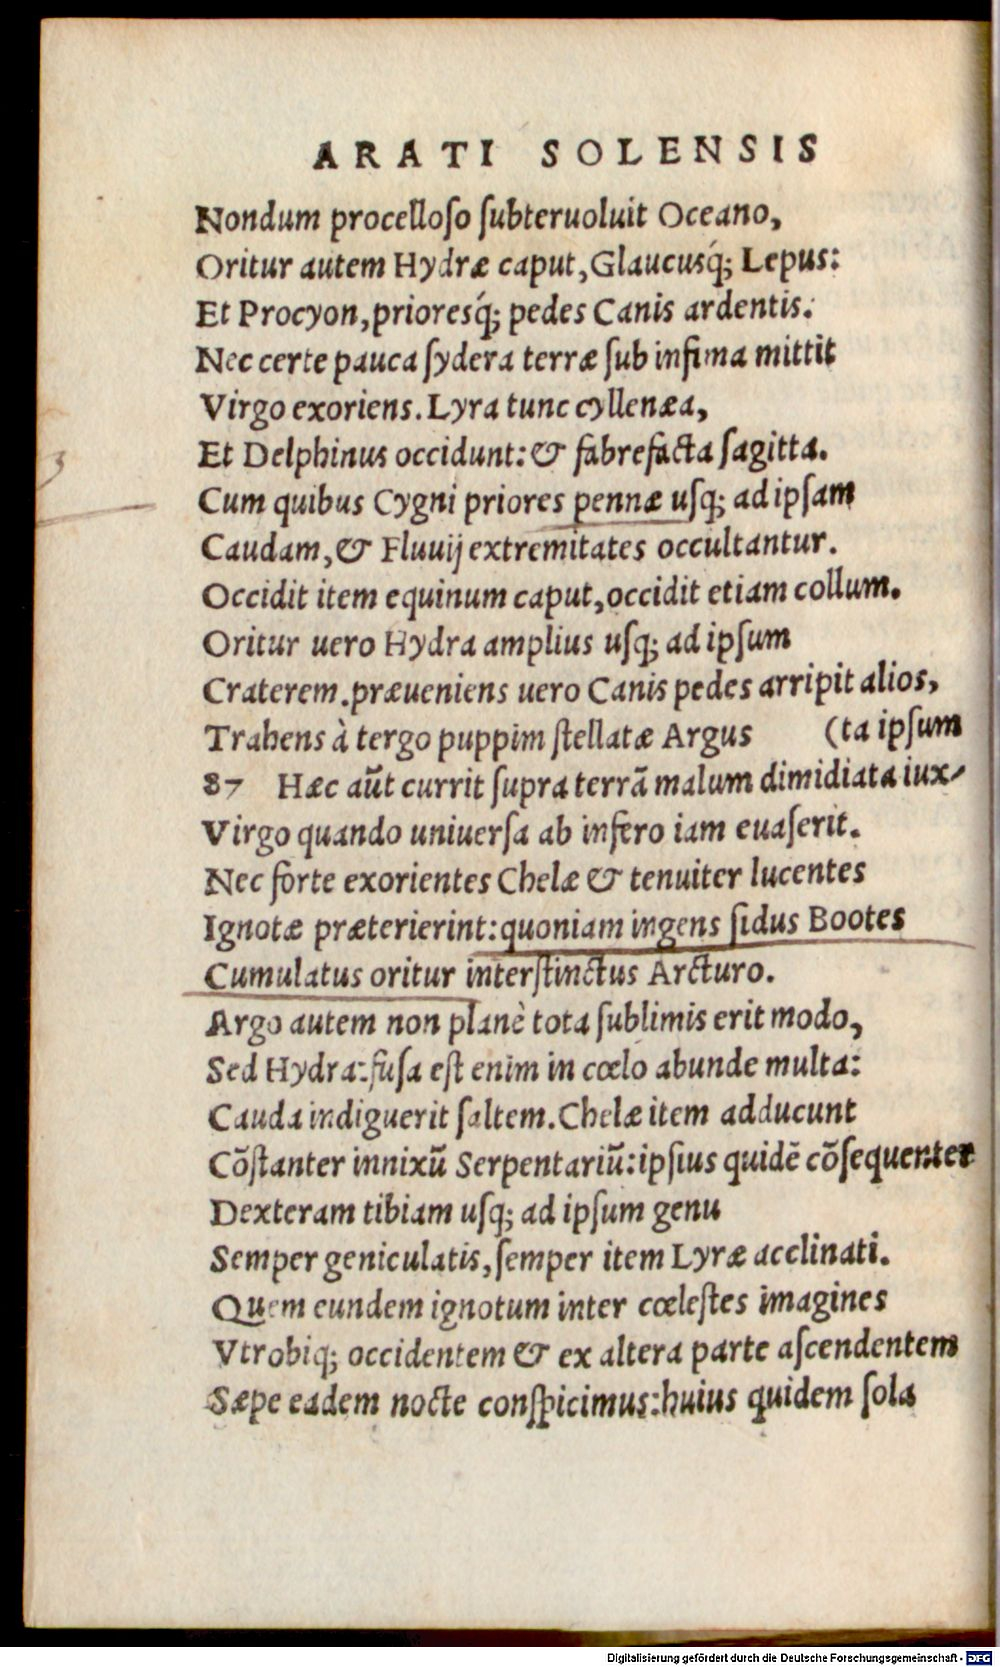 ARATI SOLENSIS
Nondum procelloſo ſubteruoluit Oceano,
Oritur autem Hydræ caput, Glaucusq́; Lepus:
Et Procyon, prioresq́; pedes Canis ardentis.
Nec certe pauca ſydera terræ ſub infima mittit
Virgo exoriens. Lyra tunc cyllenæa,
Et Delphinus occidunt: & fabrefacta ſagitta.
3
Cum quibus Cygni priores pennæ uſq; ad ipſam
Caudam, & Fluuij extremitates occultantur.
Occidit item equinum caput, occidit etiam collum.
Oritur uero Hydra amplius uſq; ad ipſum
Craterem. præueniens uero Canis pedes arripit alios,
Trahens à tergo puppim ſtellatæ Argus (ta ipſum
87 Hæc aūt currit ſupra terrā malum dimidiata iux-
Virgo quando uniuerſa ab infero iam euaſerit.
Nec forte exorientes Chelæ & tenuiter lucentes
Ignotæ præterierint: quoniam ingens ſidus Bootes
Cumulatus oritur interſtinctus Arcturo.
Argo autem non planè tota ſublimis erit modo,
Sed Hydra: fuſa eſt enim in cœlo abunde multa:
Cauda indiguerit ſaltem. Chelæ item adducunt
Cōſtanter innixū Serpentariū: ipſius quidē cōſequenter
Dexteram tibiam uſq; ad ipſum genu
Semper geniculatis, ſemper item Lyræ acclinati.
Quem eundem ignotum inter cœleſtes imagines
Vtrobiq; occidentem & ex altera parte aſcendentem
Sæpe eadem nocte conſpicimus: huius quidem ſola
Digitalisierung gefördert durch die Deutsche Forschungsgemeinschaft - DFG